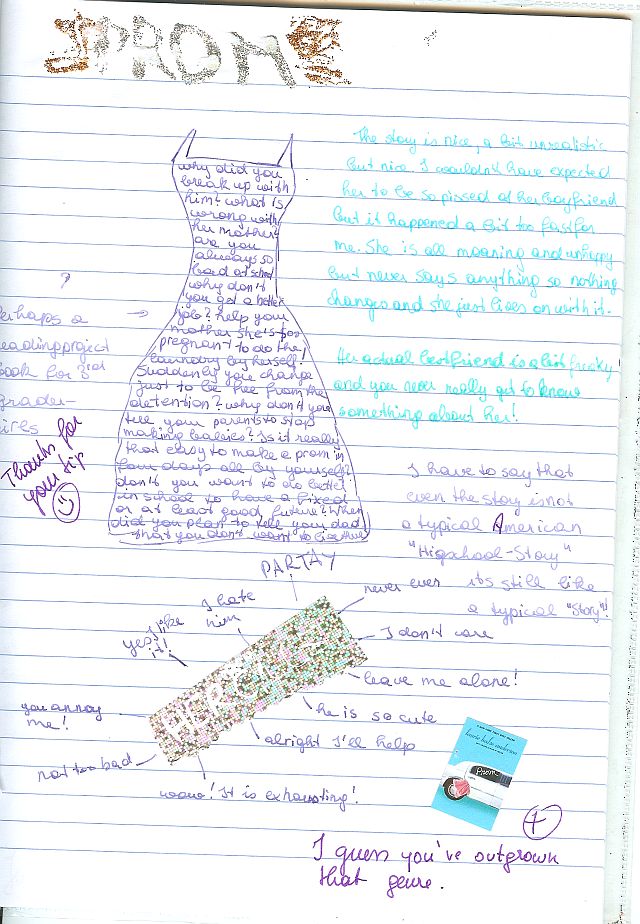 PROM
The story is nice, a bit unrealistic
but nice. I wouldn't have expected
her to be so pissed at her boyfriend
but it happened a bit too fast for
me. She is all moaning and unhappy
but never says anything so nothing
changes and she just lives on with it.
Her actual bestfriend is a bit freaky
and you never really get to know
something about her!
why did you
break up with
him? what is
wrong with
her mother?
are you
always so
bad at school
why don't
you get a better
job? help your
mother she's too
pregnant to do the
laundry by herself.
Suddenly you change
just to be free from the
detention? why don't you
tell your parents to stop
making babies? Is it really
that easy to make a prom in
four days all by yourself?
don't you want to do better
in school to have a fixed
or at least good future? When
did you plan to tell your dad
that you don't want to live there
?
Perhaps a
readingproject
book for 3rd
grader-
Thanks for
your tip
I have to say that
even the story is not
a typical American
"Higschool-Story"
its still like
a typical "Story"!
PARTAY
never ever
I hate
him
I like
it!
yes!
I don't care
leave me alone!
he is so cute
alright I'll help
you annoy
me!
not too bad
wow! It is exhausting!
laurie halse anderson
Prom
+
I guess you've outgrown
that genre.